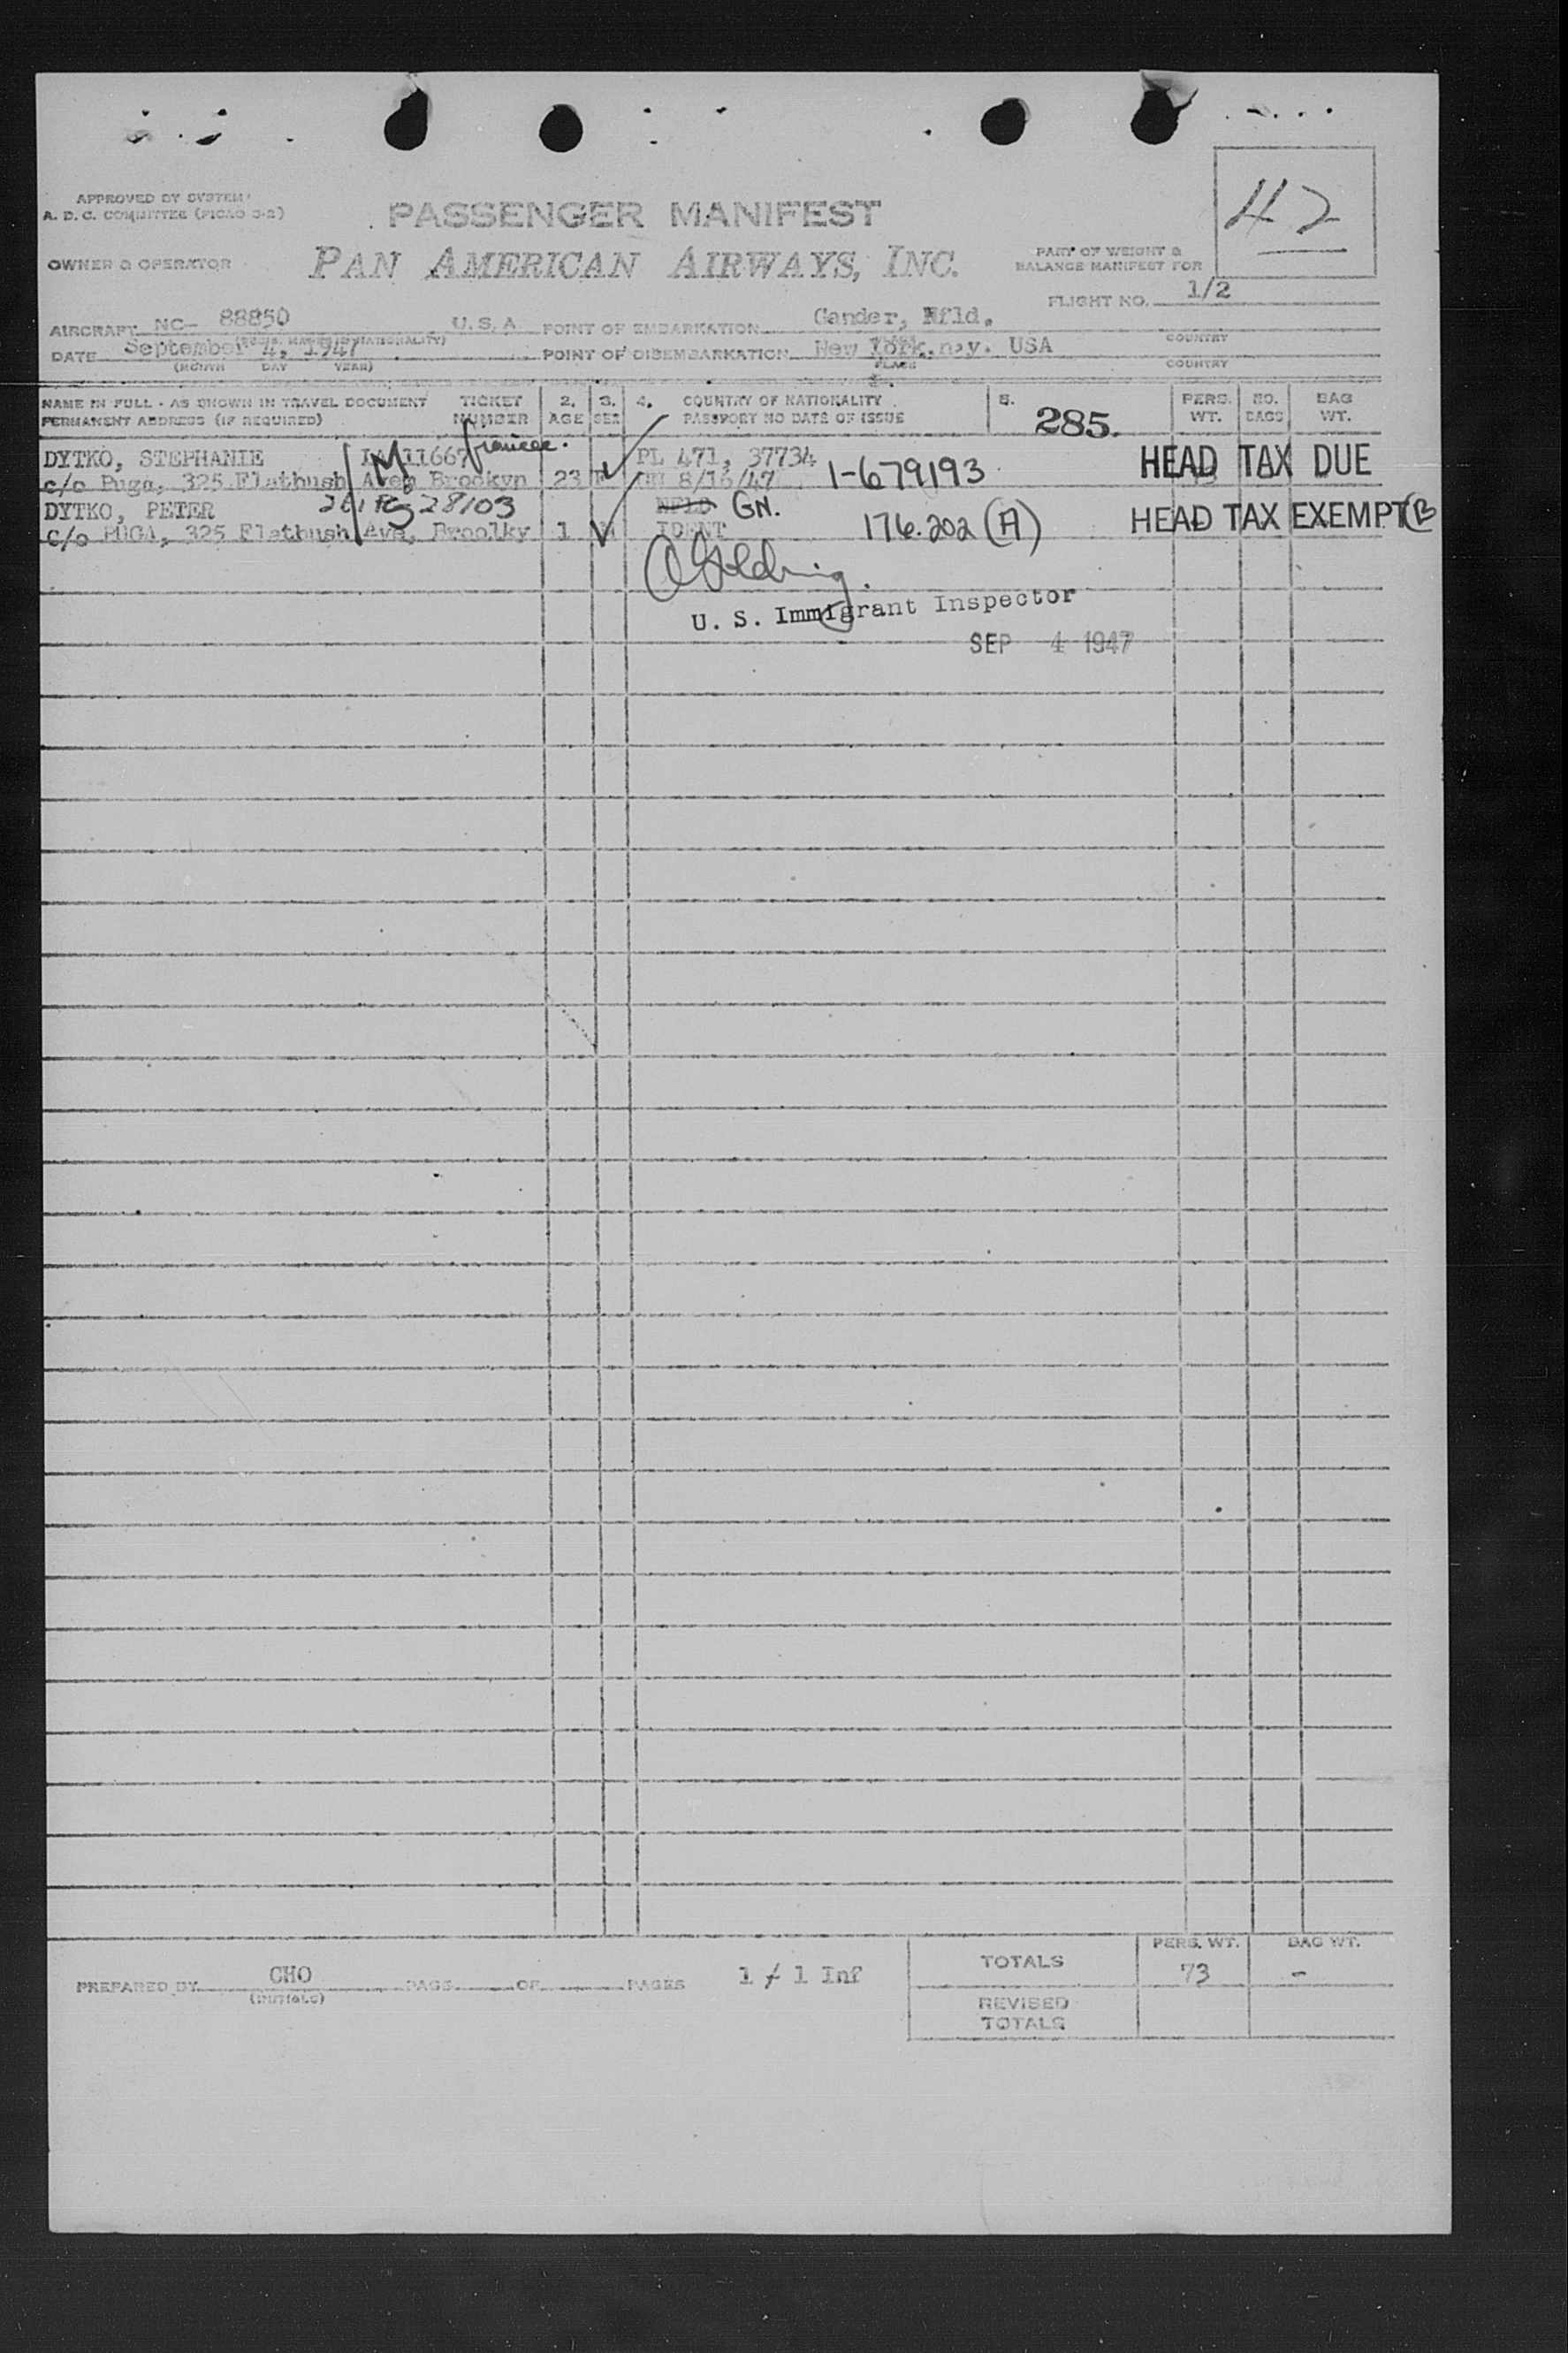 APPROVED BY SYSTEM
A. D. C. COMMITTEE (PICAO 3-2)
PASSENGER MANIFEST
42
OWNER & OPERATOR
PAN AMERICAN AIRWAYS, INC.
PART OF WEIGHT &
BALANCE MANIFEST FOR
FLIGHT NO. 1/2
AIRCRAFT NC- 88850 U.S.A. POINT OF EMBARKATION Gander, Nfld.
DATE September 4, 1947 POINT OF DISEMBARKATION New York, n.y. USA COUNTRY
(MONTH DAY YEAR) PLACE COUNTRY
NAME IN FULL - AS SHOWN IN TRAVEL DOCUMENT TICKET 2. 3. 4. COUNTRY OF NATIONALITY 5. PERS. NO. BAG
PERMANENT ADDRESS (IF REQUIRED) NUMBER AGE SEX PASSPORT NO DATE OF ISSUE 285. WT. BAGS WT.
DYTKO, STEPHANIE 11667 PL 471, 37734 HEAD TAX DUE
c/o Puga, 325 Flatbush Ave, Brookyn 23 F 8/16/47 1-679193
DYTKO, PETER 28103 NFLD GN.
c/o PUGA, 325 Flatbush Ave, Broolky 1 M IDENT 176.202 (A) HEAD TAX EXEMPT (B
U. S. Immigrant Inspector
SEP 4 1947
PREPARED BY CHO PAGE OF PAGES 1 / 1 Inf
(INITIALS)
TOTALS PERS. WT. 73 BAG WT. -
REVISED
TOTALS